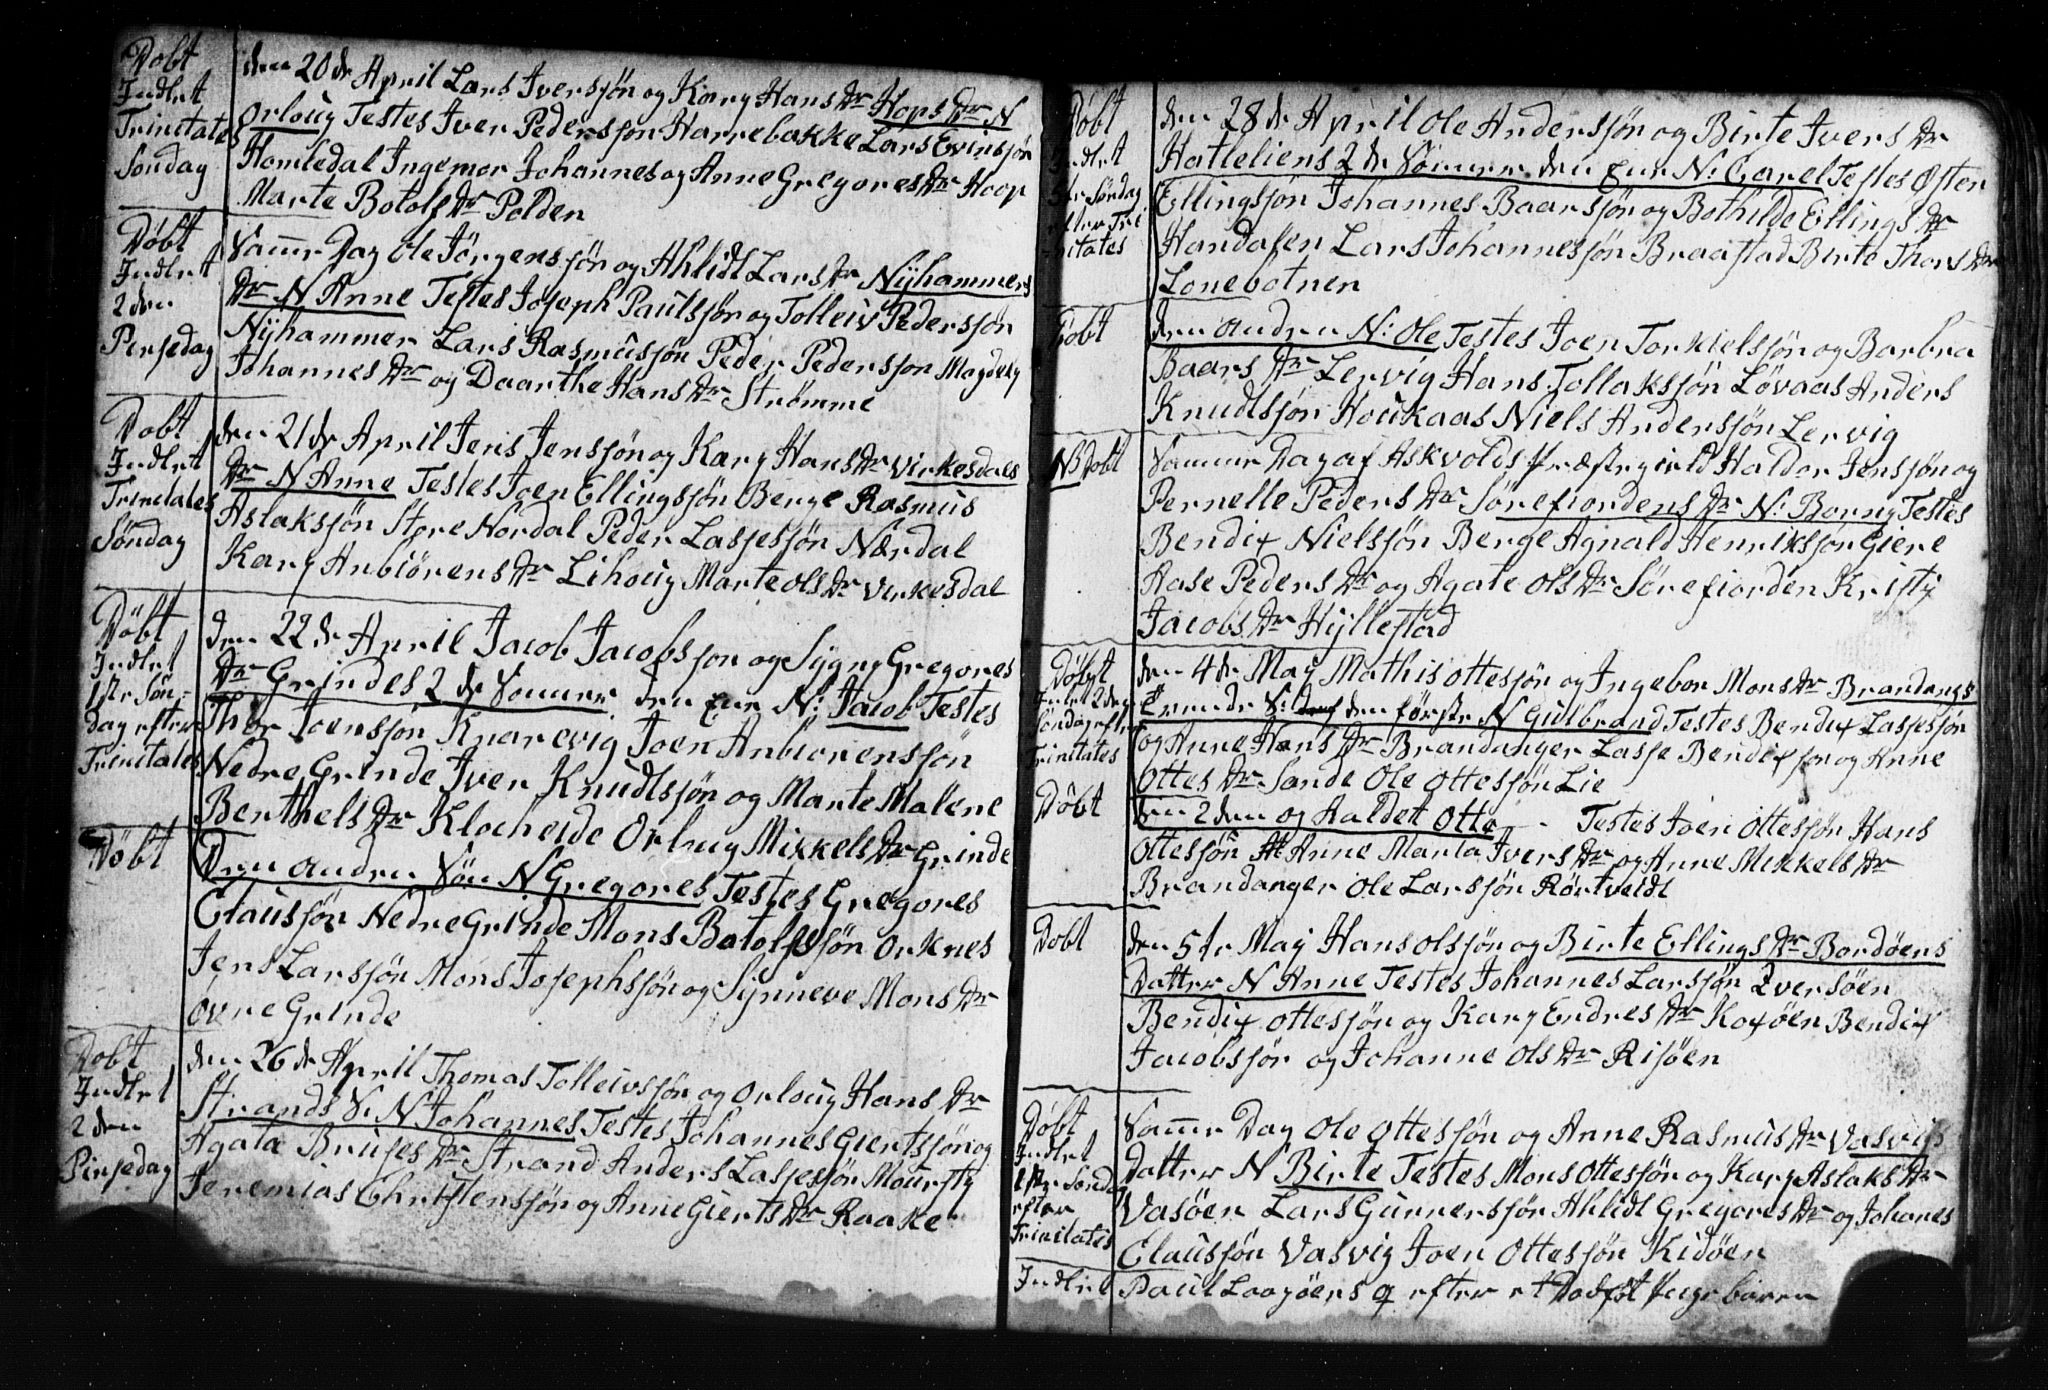 Døbt
Indlet
Trinitates
Søndag
den 20de April Lars Iversjøn og Kary Hans Dr Hops Dr N
Orloug Testes Iver Pedersjøn Harrebakke Lars Evinsjøn
Hamledal Ingemor Johannes og Anne Gregores Dr Hoop
Marte Botolf Dr Polden
Døbt
Indlet
2den
Pinsedag
Samme Dag Ole Jørgenssjøn og Ahlidt Lars Dr Nÿhammers
Dr N Anne Testes Joseph Paulsjøn og Tolleiv Pedersjøn
Nÿhammer Lars Rasmusjøn Peder Pedersjøn Magdely
Johannes Dr og Daarthe Hans Dr Strømme
Døbt
Indlet
Trinitates
Søndag
den 21de April Jens Jenssjøn og Kary Hans Dr Virkesdals
Dr N Anne Testes Joen Ellingssjøn Berge Rasmus
Aslaksjøn Store Nordal Peder Lassesjøn Nærdal
Kary Anbiørens Dr Lihoug Marte Ols Dr Virkesdal
Døbt
Indlet
1ste Søn-
dag efter
Trinitates
den 22de April Jacob Jacobssjøn og Sygny Gregores
Dr Grindes 2de Sønner den Ene N: Jacob Testes
Thor Joenssjøn Knarevig Joen Anbiorenssjøn
Nedre Grinde Iver Knudtsjøn og Marte Malene
Berthels Dr Klocheide Orloug Mikkels Dr Grinde
Døbt
Den anden Søn N Gregores Testes Gregores
Claussjøn Nedre Grinde Mons Botolfssjøn Orknes
Jens Larssjøn Mons Josephssjøn og Synneve Mons Dr
Øvre Grinde
Døbt
Indlet
2den
Pinsedag
den 26de April Thomas Tolleivssjøn og Orloug Hans Dr
Strands S: N Johannes Testes Johannes Giertssjøn og
Agata Bruses Dr Strand Anders Lassesjøn Moursty
Jeremias Christenssjøn og Anne Gierts Dr Raake
Døbt
Indlet
5te Søndag
efter Tri
nitates
den 28de April Ole Anderssjøn og Birte Ivers Dr
Hatleliens 2de Sønner den Ene N: Carel Testes Østen
Ellingsjøn Johannes Baarsjøn og Bothilde Ellings Dr
Handalen Lars Johannesjøn Braastad Birte Thors Dr
Lonebotnen
Døbt
den anden N: Ole Testes Joen Torkielsjøn og Barbra
Baars Dr Lervig Hans Tollaksjøn Løvaas Anders
Knudtsjøn Houkaas Niels Anderssjøn Lervig
NB Døbt
Samme Dag af Askvolds Præstegield Haldor Jenssjøn og
Pernelle Peders Dr Sørefiordens Dr N: Borny Testes
Bendix Nielssjøn Berge Agnald Henriksjøn Giere
Aase Peders Dr og Agate Ols Dr Sørefiorden Kristy
Jacobs Dr Hÿllestad
Døbt
Indlet 2den
Søndag efter
Trinitates
den 4de Maÿ Mathis Ottesjøn og Ingebor Mons Dr Brandangs
Tvende S: den første N Gulbrand Testes Bendix Lassesjøn
og Anne Hans Dr Brandanger Lasse Bendixsjøn og Anne
Ottes Dr Sande Ole Ottesjøn Lie
Døbt
den 2den og Kaldet Otte - Testes Joen Ottesjøn Hans
Ottesjøn Anne Marta Ivers Dr og Anne Mikkels Dr
Brandanger Ole Larssjøn Rørtveidt
Døbt
den 5te Maÿ Hans Olsjøn og Birte Ellings Dr Bordøens
Datter N Anne Testes Johannes Larssjøn Tversøen
Bendix Ottesjøn og Kary Endres Dr Koxøen Bendix
Jacobssjøn og Johanne Ols Dr Risøen
Døbt
Indlet
1ste Sønda
efter
Trinitates
Samme Dag Ole Ottesjøn og Anne Rasmus Dr Vasvigs
Datter N Birte Testes Mons Ottesjøn og Kary Aslaks Dr
Vasøen Lars Gunnersjøn Ahlidt Gregores Dr og Johanes
Claussjøn Vasvig Joen Ottesjøn Kidøen
Indlet
Paul Laagøens q efter et Dødfødt Pigebaren